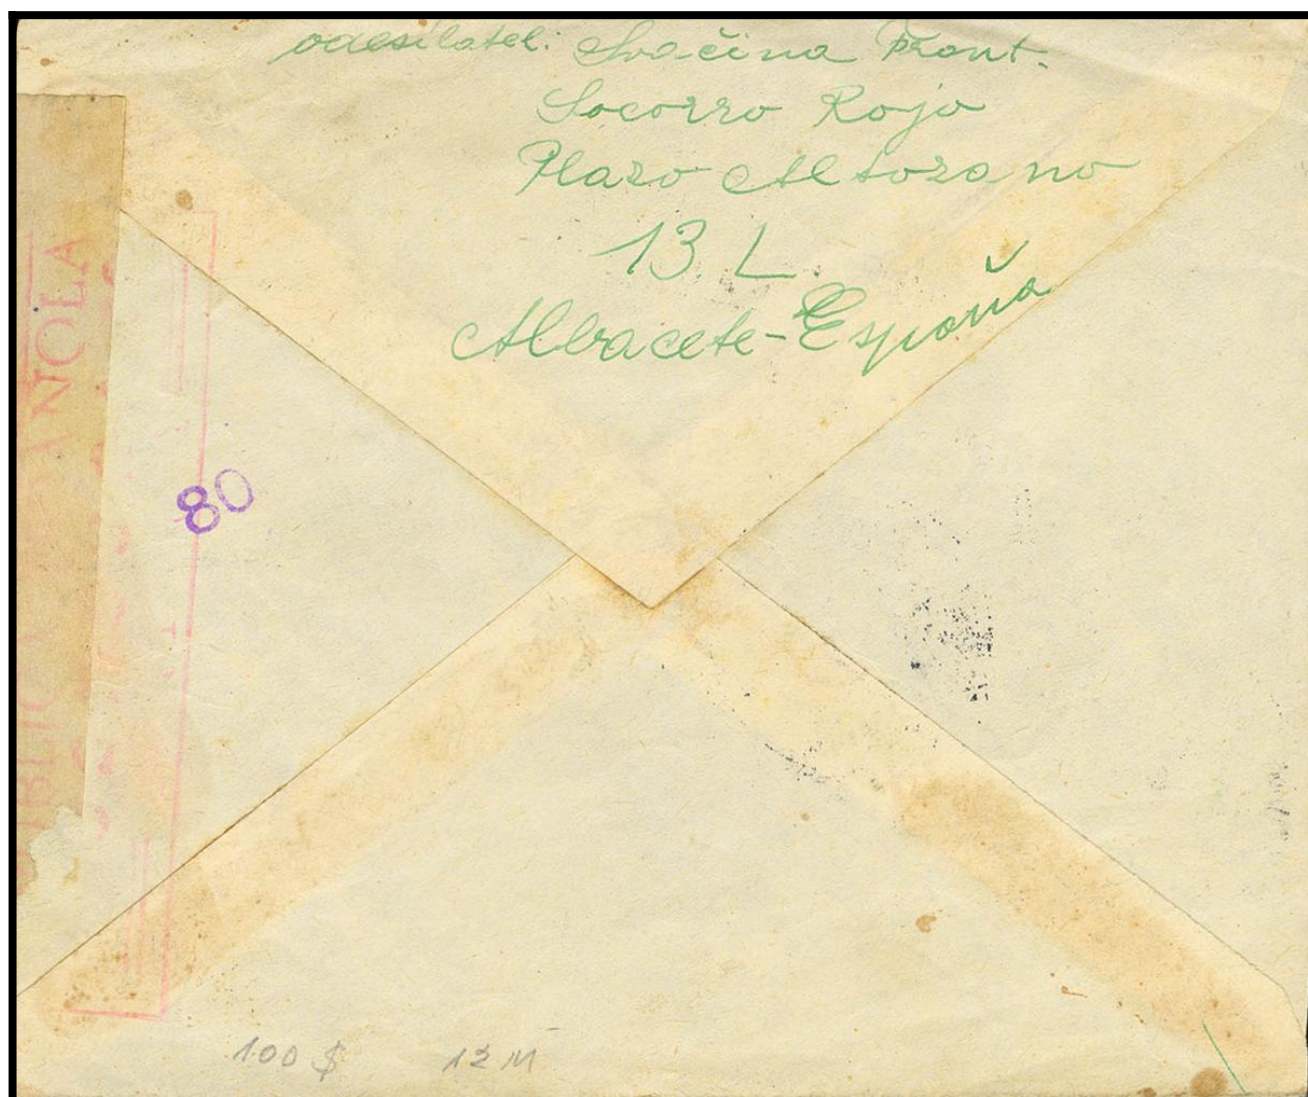 odesílatel: Svačina Frant.
Socorro Rojo
Plazo Altozano
13. L.
Albacete-Espoňa
80
100 $ 12 M